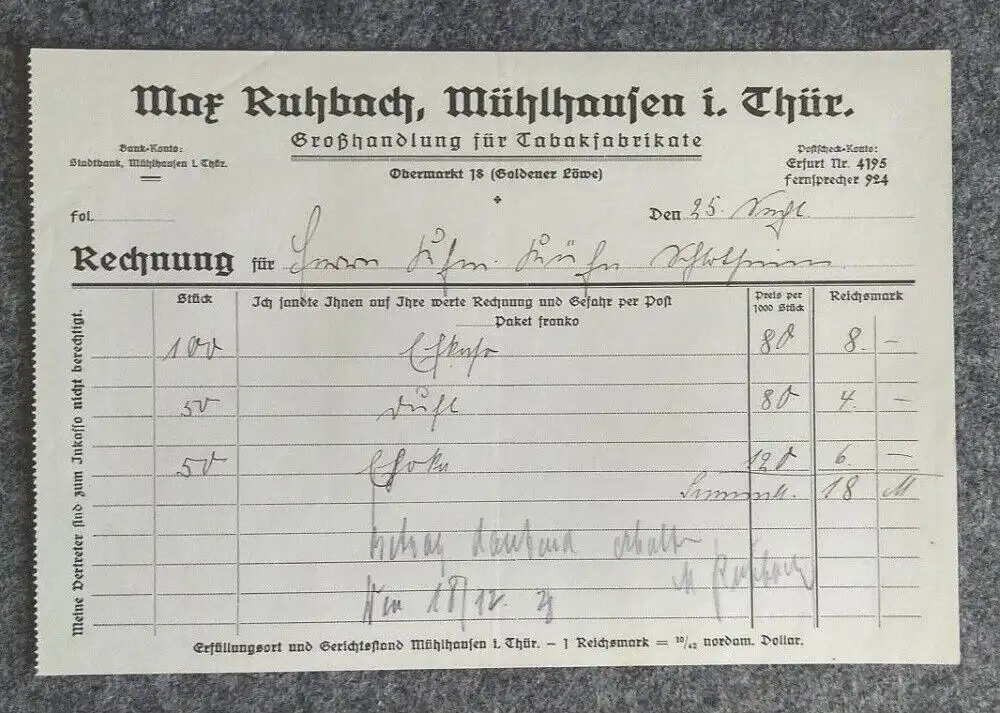 Max Ruhbach, Mühlhausen i. Thür.
Großhandlung für Tabakfabrikate
Bank-Konto:
Stadtbank, Mühlhausen i. Thür.
Obermarkt 18 (Goldener Löwe)
Postscheck-Konto:
Erfurt Nr. 4195
Fernsprecher 924
fol.
Den 25.
Rechnung für Herrn Schlotheim
Meine Vertreter sind zum Inkasso nicht berechtigt.
Stück
Ich sandte Ihnen auf Ihre werte Rechnung und Gefahr per Post
Paket franko
Preis per
1000 Stück
Reichsmark
100 80 8. –
50 Duft 80 4. –
50 120 6. –
Summa. 18 M
Betrag dankend erhalten
18/12. M Ruhbach
Erfüllungsort und Gerichtsstand Mühlhausen i. Thür. – 1 Reichsmark = 10/42 nordam. Dollar.